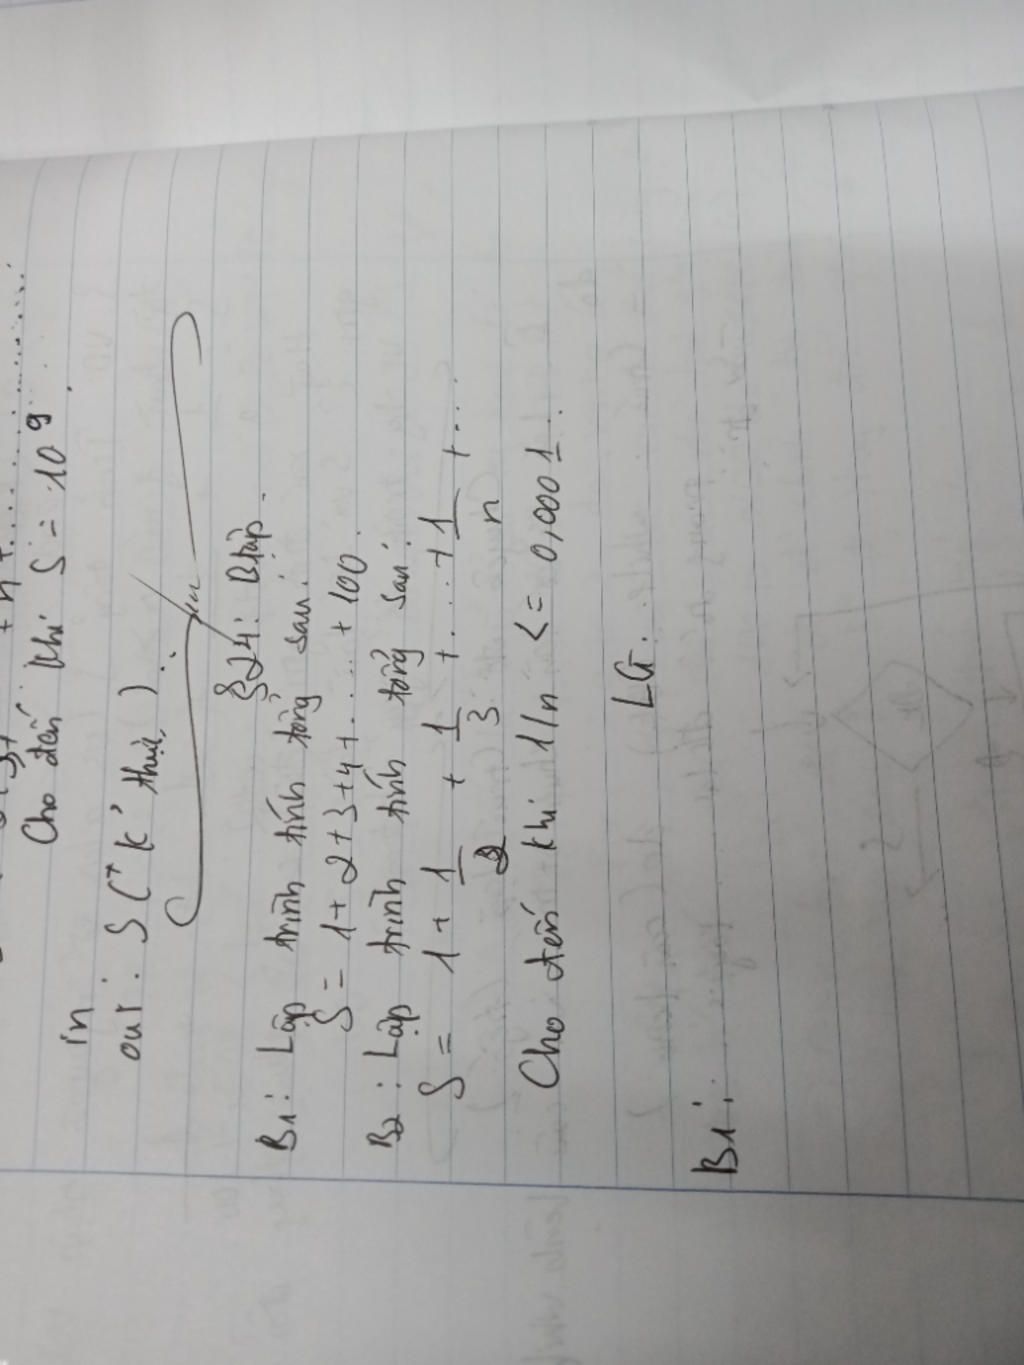 + n + ..........
Cho đến khi S = 10⁹.
in
out: S (+ k' thuộc).
§24: Btập.
B1: Lập trình tính tổng sau:
S = 1 + 2 + 3 + 4 + .... + 100.
B2: Lập trình tính tổng sau:
S = 1 + 1/2 + 1/3 + ... + 1/n + ...
Cho đến khi 1/n <= 0,0001.
LG.
B1: